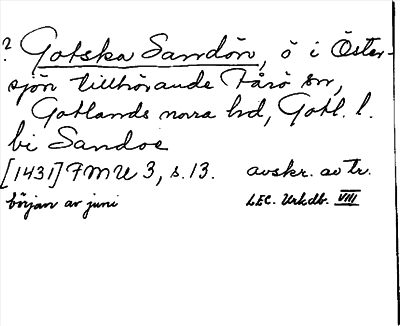 ? Gotska Sandön, ö i Öster-
sjön tillhörande Fårö sn,
Gotlands norra hd, Gotl. l.
bi Sandoe
[1431] FMU 3, s. 13. avskr. av tr.
början av juni LEC. Urkdb. VIII